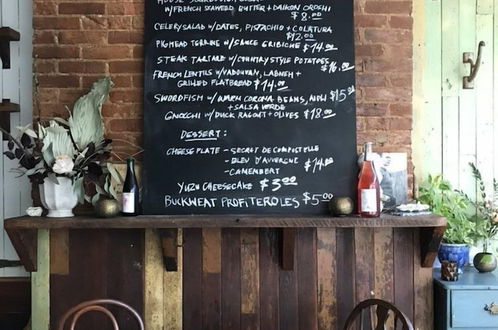 W/FRENCH SEAWEED BUTTER + DAIKON OROSHI
$8.00
CELERY SALAD W/DATES, PISTACHIO + COLATURA
$12.00
PIGHEAD TERRINE W/SAUCE GRIBICHE $14.00
STEAK TARTARE W/COUNTRY STYLE POTATOES
$16.00
FRENCH LENTILS W/VADOUVAN, LABNEH +
GRILLED FLATBREAD $14.00
SWORDFISH W/WARM CORONA BEANS, AIOLI $15.00
+ SALSA VERDE
GNOCCHI W/DUCK RAGOUT + OLIVES $18.00
DESSERT:
CHEESE PLATE - SECRET DE COMPOSTELLE
- BLEU D'AUVERGNE $14.00
- CAMEMBERT
YUZU CHEESECAKE $3.00
BUCKWEAT PROFITEROLES $5.00